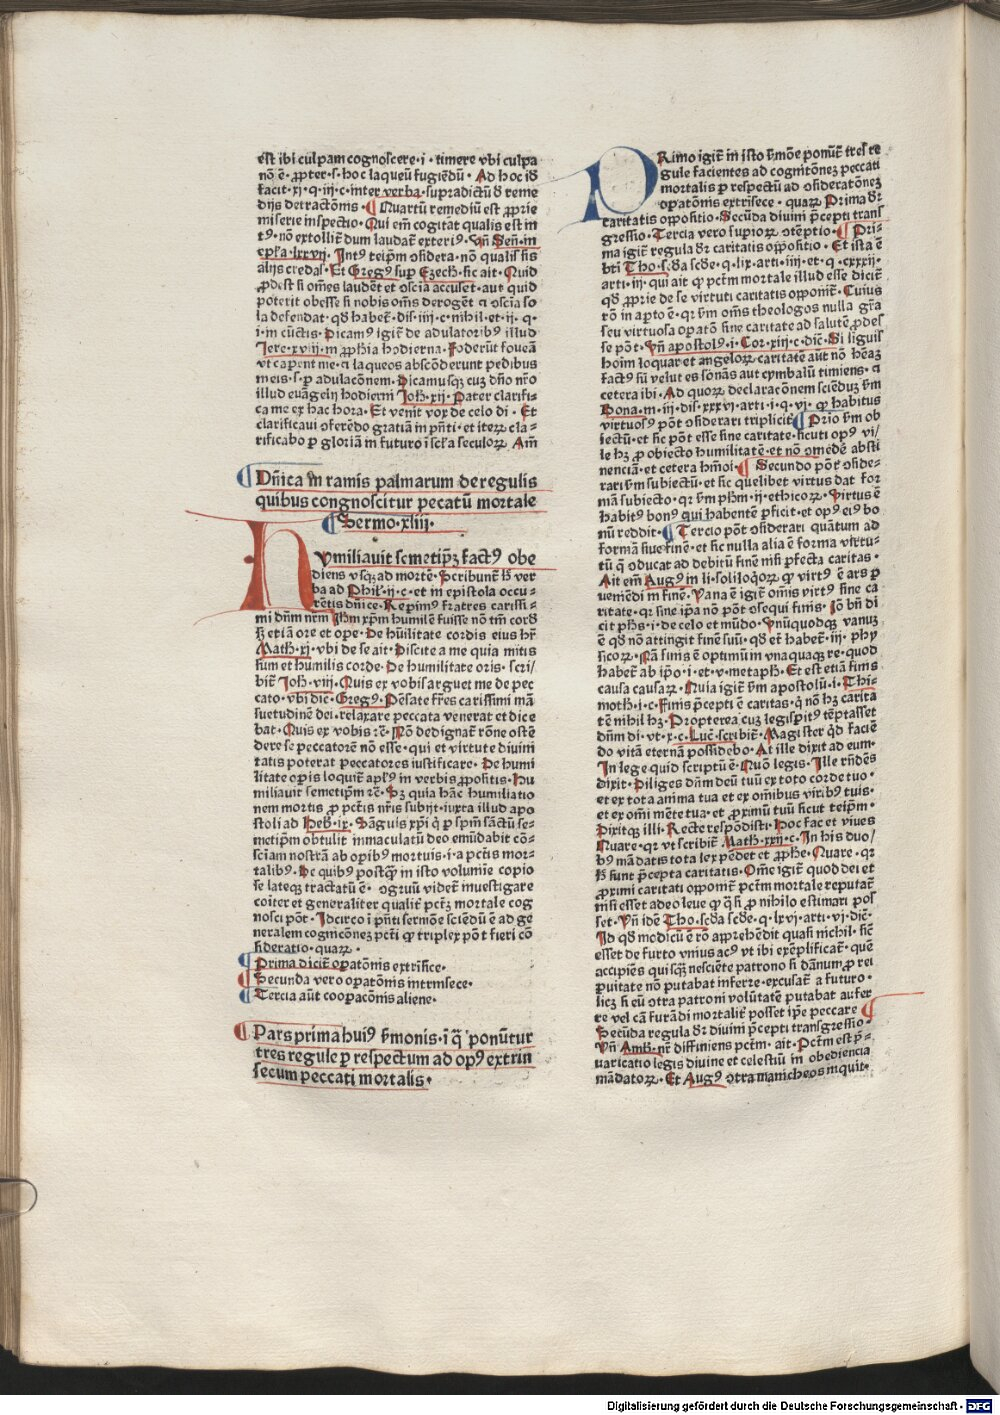 est ibi culpam cognoscere·i·timere vbi culpa
nō ē·ꝓpter·s·hoc laqueū fugiēdū·Ad hoc id
facit·xj·q·iij·c·inter verba·supradictū ꝯ reme
dijs detractōnis·¶Quartū remediū est ꝓprie
miserie inspectio·Qui em̄ cogitāt qualis est in
tꝰ·nō extollit᷑ dum laudat᷑ exteriꝰ·Vn̄ Sen̄·in
ep̄la·lxxvij·Intꝰ teip̄m ꝯsidera·nō qualis sis
alijs credas·Et Gregꝰ sup̄ Ezech·sic ait·Quid
ꝓdest si om̄es laudēt et ꝯscīa accuset·aut quid
poterit obesse si nobis om̄s derogēt ⁊ ꝯscīa so
la defendat·qd̄ habet᷑·dis·iiij·c·nihil·et·ij·q·
i·in cūctis·Dicamꝰ igit᷑ de adulatoribꝰ illud
Jere·xviij·in ꝓphīa hodierna·Foderūt foueā
vt caperēt me·⁊ laqueos abscōderunt pedibus
meis·s·ꝑ adulacōnem·Dicamusqꝫ cuꝫ dn̄o nr̄o
illud euāgelij hodierni Joh̄·xij·Pater clarifi-
ca me ex hac hora·Et venit vox de celo di·Et
clarificaui ꝯferēdo gratiā in pn̄ti·et iteꝝ cla-
rificabo ꝑ gloriā in futuro ī scl̄a seculoꝝ Am̄
¶Dn̄ica in ramis palmarum de regulis
quibus congnoscitur pecatū mortale
¶Sermo·xliij·
Humiliauit semetip̄ꝫ factꝰ obe
diens vsqꝫ ad mortē·Scribunt᷑ h̄ ver
ba ad Phil·ij·c·et in epistola occu-
rētis dn̄ice·Reperimꝰ fratres carissi-
mi dn̄m nr̄m Jh̄m xp̄m humilē fuisse nō tm̄ cord̄
sꝫ etiā ore et ope·De hūilitate cordis eius hr̄
Math·xj·vbi de se ait·Discite a me quia mitis
sum et humilis corde·De humilitate oris·scri/
bit᷑ Joh̄·viij·Quis ex vobis arguet me de pec
cato·vbi dic̄·Gregꝰ·Pēsate fr̄es carissimi mā
suetudinē dei·relaxare peccata venerat et dice
bat·Quis ex vobis ꝛc̄·Nō dedignat᷑ rōne ostē
dere se peccatorē nō esse·qui et virtute diuini
tatis poterat peccatores iustificare·De humi
litate oꝑis loquit᷑ apl̄ꝰ in verbis ꝓpositis·Hu
miliauit semetip̄m ꝛc̄·Sꝫ quia hāc humiliatio
nem mortis ꝓ pctīs nr̄is subijt·iuxta illud apo
stoli ad Heb̄·ix·Sāguis xp̄i q̄ ꝑ sp̄m sāctū se-
metip̄m obtulit immaculatū deo emūdabit cō-
sciam nostrā ab oꝑibꝰ mortuis·i·a pctīs mor-
talibꝰ·De quibꝰ postꝙ̄ in isto volumīe copio
se lateqꝫ tractatū ē·ꝯgruū videt᷑ inuestigare
cōiter et generaliter qualit᷑ pctꝫ mortale cog
nosci pōt·Idcirco ī pn̄ti sermōe sciēdū ē ad ge
neralem cognicōnez pctī ꝙ triplex pōt fieri cō
sideratio·quaꝝ·
¶Prima dicit᷑ oꝑatōnis extrīsice·
¶Secunda vero oꝑatōnis intrinsece·
¶Tercia aūt cooꝑacōnis aliene·
¶Pars prima huiꝰ s̄monis·i q̄ ponūtur
tres regule ꝑ respectum ad opꝰ extrin
secum peccati mortalis·
PRimo igit᷑ in isto s̄mōe ponūt᷑ tres re
gule facientes ad cognitōnez peccati
mortalis ꝑ respectū ad ꝯsideratōnez
oꝑatōnis extrīsece·quaꝝ Prima dr̄
caritatis oppositio·Secūda diuini p̄cepti trans
gressio·Tercia vero suꝑioꝝ ꝯtēptio·¶Pri-
ma igit᷑ regula dr̄ caritatis oppositio·Et ista ē
bt̄i Tho·sc̄da sc̄de·q·lix·arti·iiij·et·q·cxxxij·
arti·iij·qui ait ꝙ pctm̄ mortale illud esse dicit᷑
qd̄ ꝓprie de se virtuti caritatis opponit᷑·Cuius
rō in aꝑto ē·qꝛ s̄m om̄s theologos nulla gr̄a
seu virtuosa oꝑatō sine caritate ad salutē ꝓdes
se pōt·Vn̄ apostolꝰ·i·Cor·xiij·c·dic̄·Si liguis
hoīm loquar et angeloꝝ caritatē aūt nō hēaꝫ
factꝰ sū velut es sonās aut cymbalū tīniens·⁊
cetera ibi·Ad quoꝝ declaracōnem sciēduꝫ s̄m
Bona·in·iij·dis·xxxvj·arti·i·q·vj·ꝙ habitus
virtuosꝰ pōt ꝯsiderari tripliciť ¶Prīo s̄m ob
iectū·et sic pōt esse sine caritate·sicuti opꝰ vi/
le hꝫ ꝓ obiecto humilitatē·et nō ꝯmedē absti
nenciā·et cetera hm̄oi·¶Secundo pōt ꝯside-
rari s̄m subiectū·et sic quelibet virtus dat for
mā subiecto·qꝛ s̄m phm̄·ij·ethicoꝝ·Virtus ē
habitꝰ bonꝰ qui habentē ꝑficit·et opꝰ eiꝰ bo
nū reddit·¶Tercio pōt ꝯsiderari quātum ad
formā siue finē·et sic nulla alia ē forma virtu-
tū q̄ ꝯducat ad debitū finē nisi ꝑfecta caritas·
Ait em̄ Augꝰ in li·soliloqōꝝ ꝙ virtꝰ ē ars ꝑ
ueniēdi in finē·Vana ē igit᷑ om̄is virtꝰ sine ca
ritate·qꝛ sine ip̄a nō pōt ꝯsequi finis·Jō bn̄ di
cit phs̄·i·de celo et mūdo·Vnūquodqꝫ vanuꝫ
ē qd̄ nō attingit finē suū·qd̄ et habet᷑·iij·phy
sicoꝝ·Nā finis ē optimū in vnaquaqꝫ re·quod
habet᷑ ab ip̄o·i·et·v·metaph̄·Et est etiā finis
causa causaꝝ·Quia igit᷑ s̄m apostolū·i·Thi-
moth·i·c·Finis p̄cepti ē caritas·q̄ nō hꝫ carita
tē nihil hꝫ·Propterea cuꝫ legisꝑitꝰ tēptasset
dn̄m di·vt·x·c·Luc̄·scribit᷑·Magister qd̄ faciē
do vitā eternā possidebo·At ille dixit ad eum·
In lege quid scriptū ē·Quō legis·Ille rn̄dēs
dixit·Diliges dn̄m deū tuū ex toto corde tuo·
et ex tota anima tua et ex om̄ibus viribꝰ tuis·
et ex om̄i mēte tua·et ꝓximū tuū sicut teip̄m·
Dixitqꝫ illi·Recte respōdisti·Hoc fac et viues
Quare·qꝛ vt scribit᷑ Math·xxij·c·In his duo/
bꝰ mādatis tota lex pēdet et ꝓphe·Quare·qꝛ
h̄ sunt p̄cepta caritatis·Om̄e igit᷑ quod dei et
ꝓximi caritati opponit᷑ pctm̄ mortale reputat᷑
nisi esset adeo leue ꝙ q̄si ꝓ nihilo estimari pos
set·Vn̄ idē Tho·sc̄da sc̄de·q·lxvj·arti·vj·dic̄·
Id qd̄ modicū ē rō apprehēdit quasi nichil·sic̄
esset de furto vnius acꝰ vt ibi exēplificat᷑·quē
accipiēs quisqꝫ nesciēte patrono si dānum ꝓ rei
ꝑuitate nō putabat inferre·excusat᷑ a futuro·
licꝫ si eū ꝯtra patroni volūtatē putabat aufer
re vel cā furādi mortalit᷑ posset ip̄e peccare ¶
Secūda regula dr̄ diuini p̄cepti transgressio·
Vn̄ Amb̄·nr̄ diffiniens pctm̄·ait·Pctm̄ est p̄-
uaricatio legis diuine et celestiū in obediencia
mādatoꝝ·Et Augꝰ ꝯtra manicheos inquit·
Digitalisierung gefördert durch die Deutsche Forschungsgemeinschaft - DFG